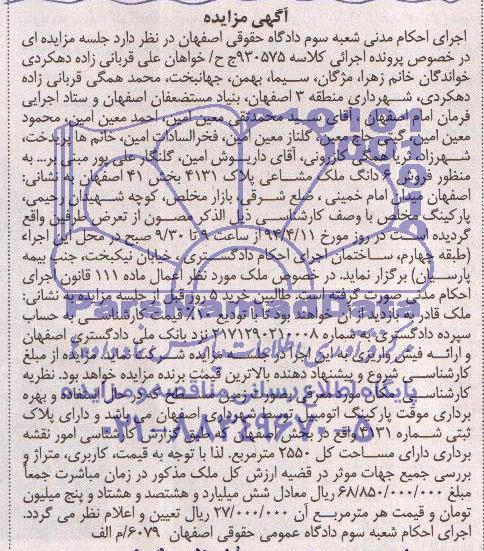 آگهی مزایده
اجرای احکام مدنی شعبه سوم دادگاه حقوقی اصفهان در نظر دارد جلسه مزایده ای
در خصوص پرونده اجرائی کلاسه ۹۳۰۵۷۵ج ح/ خواهان علی قربانی زاده دهکردی
خواندگان خانم زهرا، مژگان، سیما، بهمن، جهانبخت، محمد همگی قربانی زاده
دهکردی، شهرداری منطقه ۳ اصفهان، بنیاد مستضعفان اصفهان و ستاد اجرایی
فرمان امام اصفهان، آقای سید محمدتقی معین امین، احمد معین امین، محمود
معین امین، گیتی حاج معین، گلناز معین امین، فخرالسادات امین، خانم ها پریدخت،
شهرزاد، ثریا همگی کازرونی، آقای داریوش امین، گلنگار علی پور مبنی بر... به
منظور فروش ۶ دانگ ملک مشاعی پلاک ۴۱۳۱ بخش ۴۱ اصفهان به نشانی:
اصفهان میدان امام خمینی، ضلع شرقی، بازار مخلص، کوچه شهیدان رحیمی،
پارکینگ مخلص با وصف کارشناسی ذیل الذکر مصون از تعرض طرفین واقع
گردیده است در روز مورخ ۹۴/۴/۱۱ از ساعت ۹ تا ۹/۳۰ صبح در محل این اجراء
(طبقه چهارم، ساختمان اجرای احکام دادگستری، خیابان نیکبخت، جنب بیمه
پارسیان) برگزار نماید. در خصوص ملک مورد نظر اعمال ماده ۱۱۱ قانون اجرای
احکام مدنی صورت گرفته است. طالبین خرید ۵ روز قبل از جلسه مزایده به نشانی:
ملک قادر به بازدید از آن خواهند بود تا با تودیع ۱۰٪ قیمت کارشناسی به حساب
سپرده دادگستری به شماره ۲۱۷۱۲۹۰۲۱۰۰۰۸ نزد بانک ملی دادگستری اصفهان
و ارائه فیش واریزی به این اجرا در جلسه مزایده شرکت نماید. مزایده از مبلغ
کارشناسی شروع و پیشنهاد دهنده بالاترین قیمت برنده مزایده خواهد بود. نظریه
کارشناسی: مکان مورد معرفی بصورت زمین مسطح که در حال استفاده و بهره
برداری موقت پارکینگ اتومبیل توسط شهرداری اصفهان می باشد و دارای پلاک
ثبتی شماره ۴۱۳۱ واقع در بخش اصفهان که طبق گزارش کارشناسی امور نقشه
برداری دارای مساحت کل ۲۵۵۰ مترمربع. لذا با توجه به قیمت، کاربری، متراژ و
بررسی جمیع جهات موثر در قضیه ارزش کل ملک مذکور در زمان مباشرت جمعاً
مبلغ ۶۸/۸۵۰/۰۰۰/۰۰۰ ریال معادل شش میلیارد و هشتصد و هشتاد و پنج میلیون
تومان و قیمت هر مترمربع آن ۲۷/۰۰۰/۰۰۰ ریال تعیین و اعلام نظر می گردد.
اجرای احکام شعبه سوم دادگاه عمومی حقوقی اصفهان ۶۰۷۹/م الف
Pars Namad Data
پایگاه اطلاع رسانی مناقصه و مزایده
۰۲۱-۸۸۳۴۹۶۷۰-۵